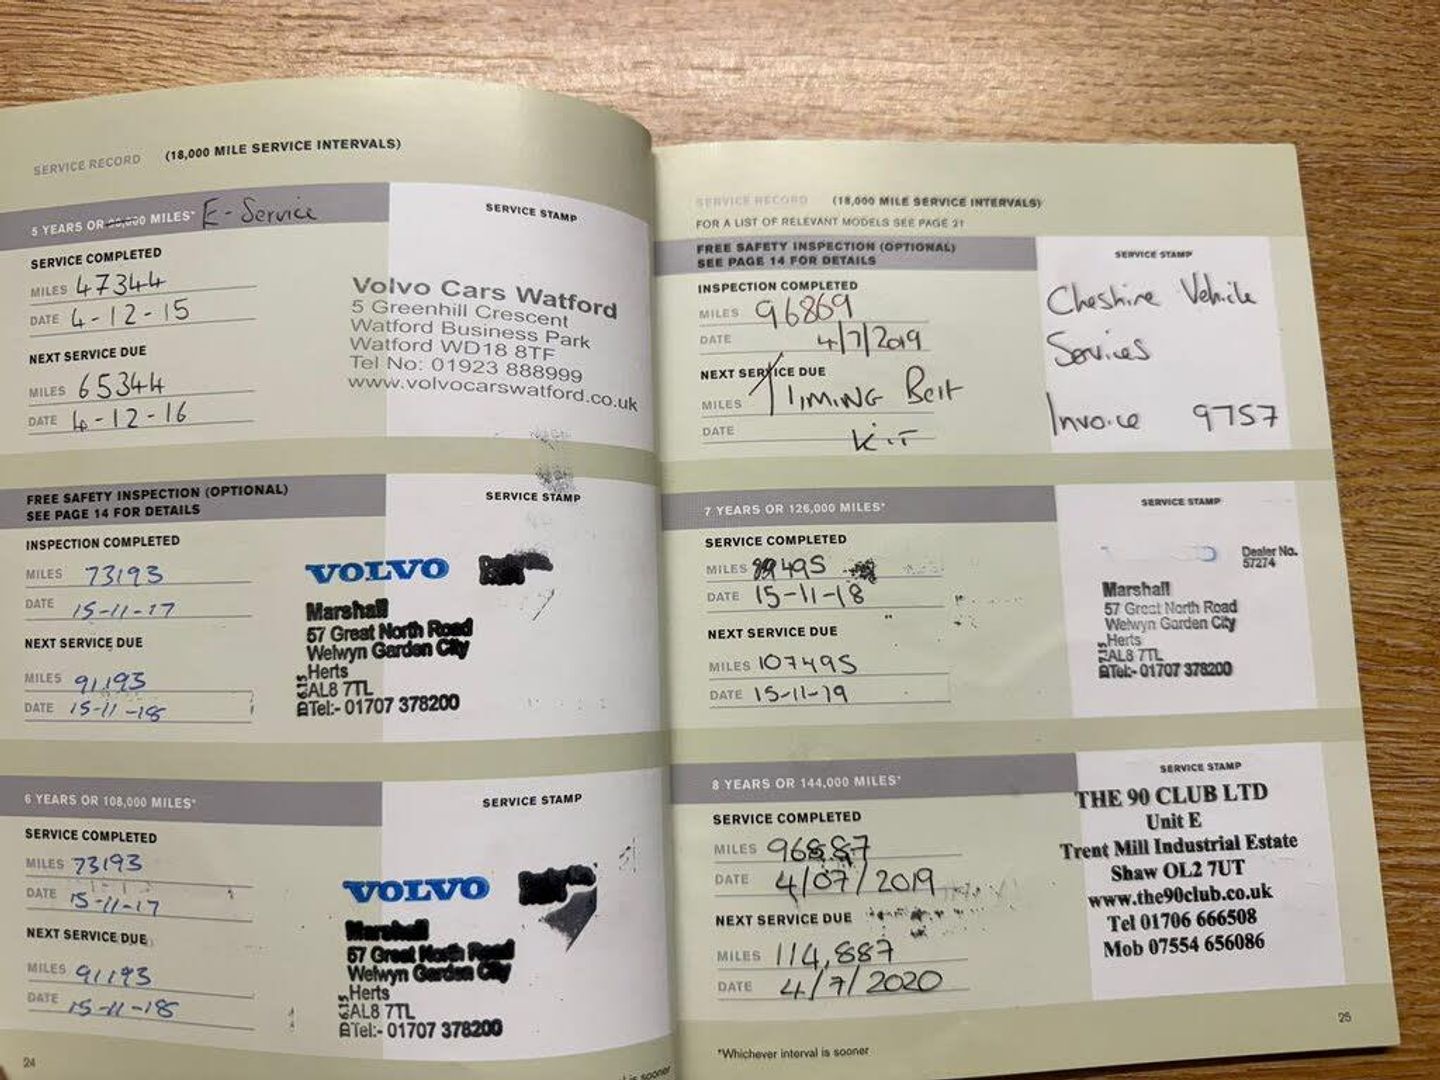 SERVICE RECORD (18,000 MILE SERVICE INTERVALS)
5 YEARS OR MILES* E-Service
SERVICE COMPLETED
MILES 47344
DATE 4-12-15
NEXT SERVICE DUE
MILES 65344
DATE 4-12-16
SERVICE STAMP
Volvo Cars Watford
5 Greenhill Crescent
Watford Business Park
Watford WD18 8TF
Tel No: 01923 888999
www.volvocarswatford.co.uk
FREE SAFETY INSPECTION (OPTIONAL)
SEE PAGE 14 FOR DETAILS
INSPECTION COMPLETED
MILES 73193
DATE 15-11-17
NEXT SERVICE DUE
MILES 91193
DATE 15-11-18
SERVICE STAMP
VOLVO
Marshall
57 Great North Road
Welwyn Garden City
Herts
AL8 7TL
Tel:- 01707 378200
6 YEARS OR 108,000 MILES*
SERVICE COMPLETED
MILES 73193
DATE 15-11-17
NEXT SERVICE DUE
MILES 91193
DATE 15-11-18
SERVICE STAMP
VOLVO
Marshall
57 Great North Road
Welwyn Garden City
Herts
AL8 7TL
Tel:- 01707 378200
24
is sooner
SERVICE RECORD (18,000 MILE SERVICE INTERVALS)
FOR A LIST OF RELEVANT MODELS SEE PAGE 21
FREE SAFETY INSPECTION (OPTIONAL)
SEE PAGE 14 FOR DETAILS
INSPECTION COMPLETED
MILES 96869
DATE 4/7/2019
NEXT SERVICE DUE
MILES TIMING Belt
DATE Kit
SERVICE STAMP
Cheshire Vehicle
Services
Invoice 9757
7 YEARS OR 126,000 MILES*
SERVICE COMPLETED
MILES
DATE 15-11-18
NEXT SERVICE DUE
MILES 107495
DATE 15-11-19
SERVICE STAMP
Dealer No.
57274
Marshall
57 Great North Road
Welwyn Garden City
Herts
AL8 7TL
Tel:- 01707 378200
8 YEARS OR 144,000 MILES*
SERVICE COMPLETED
MILES 96887
DATE 4/07/2019
NEXT SERVICE DUE
MILES 114,887
DATE 4/7/2020
SERVICE STAMP
THE 90 CLUB LTD
Unit E
Trent Mill Industrial Estate
Shaw OL2 7UT
www.the90club.co.uk
Tel 01706 666508
Mob 07554 656086
*Whichever interval is sooner
25